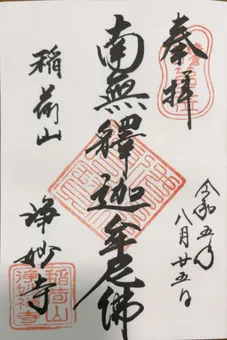 奉拝
令和五年
八月廿五日
南無釋迦牟尼佛
稲荷山
浄妙寺
稲荷山
浄妙寺